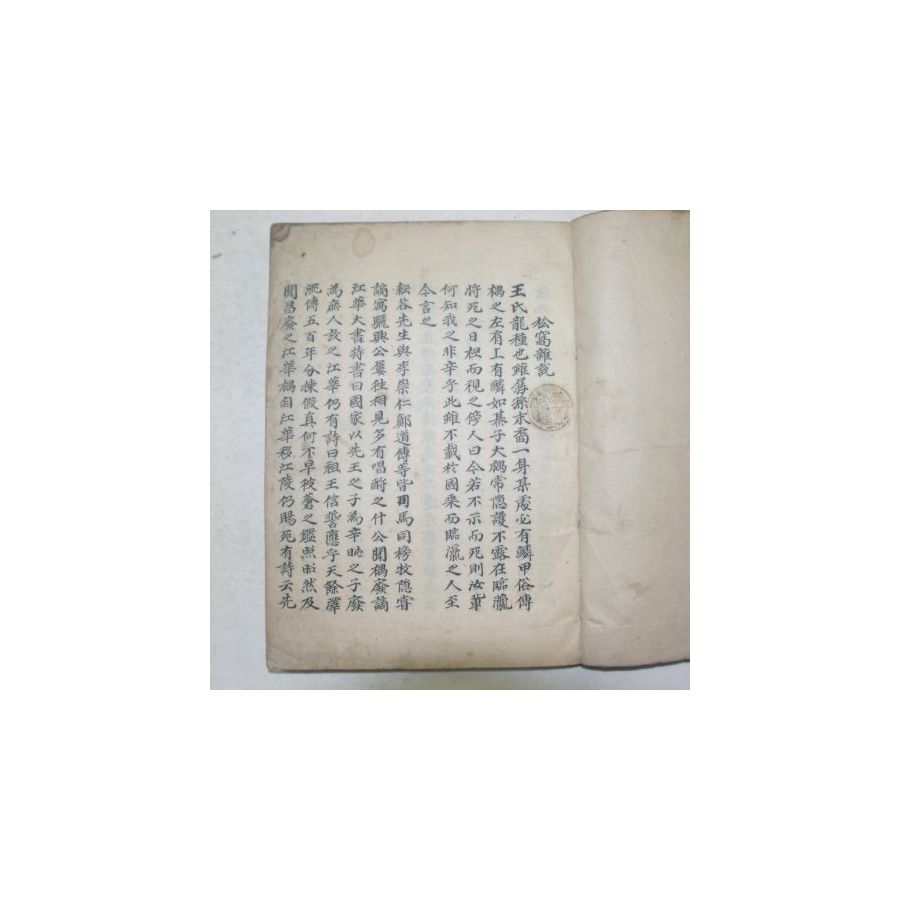 松窩雜說
王氏龍種也雖孱孫末裔一身某處必有鱗甲俗傳
禑之左肩上有鱗如棊子大禑常隱護不露在臨瀛
將死之日袒而視之傍人曰今若不示而死則汝輩
何知我之非辛乎此雖不載於國乘而臨瀛之人至
今言之
耘谷先生與李崇仁鄭道傳等皆司馬同榜牧隱嘗
謫寓驪興公屡往相見多有唱酬之什公聞禑廢謫
江華大書特書曰國家以先王之子為辛旽之子廢
為庶人放之江華仍有詩曰祖王信誓應乎天餘澤
流傳五百年分揀假真何不早彼蒼之鑑照昭然及
聞昌廢之江華禑自江華移江陵仍賜死有詩云先